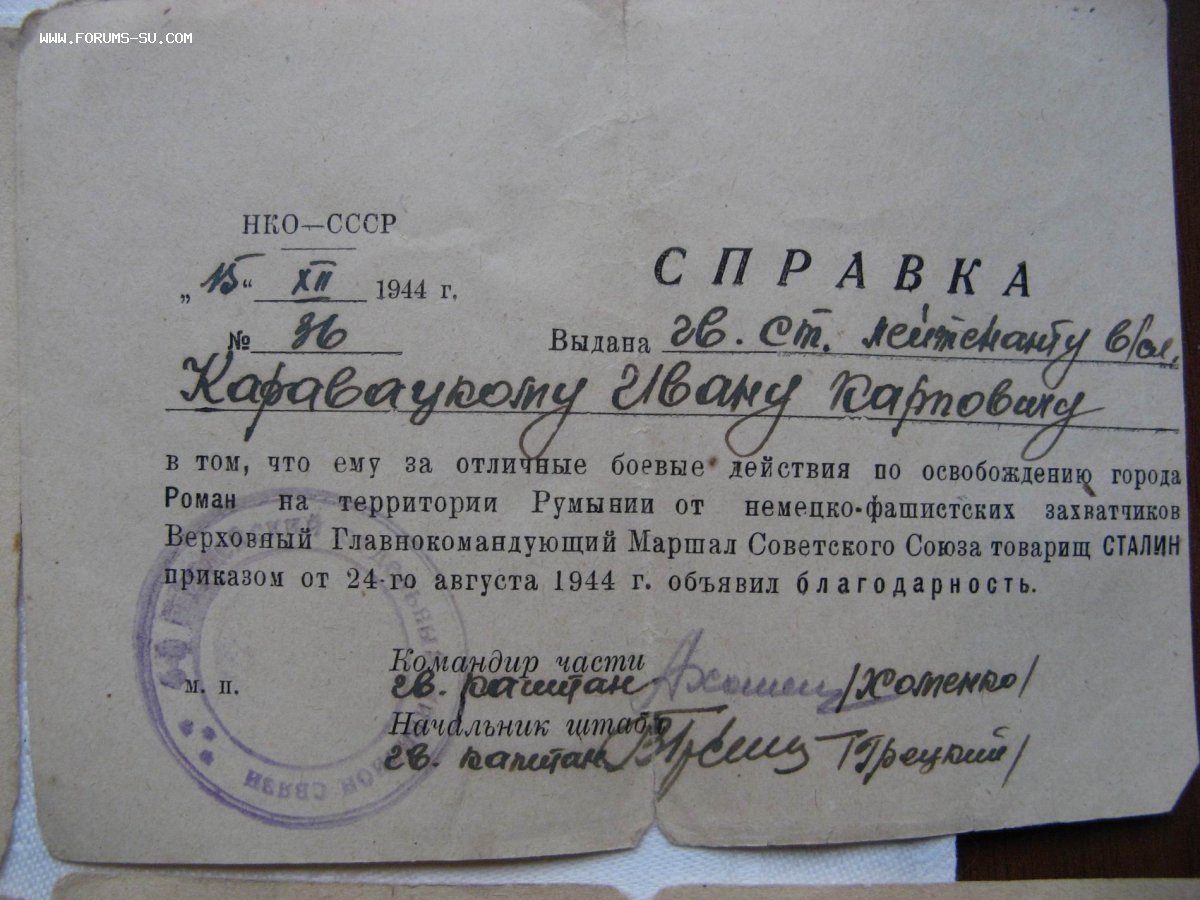 WWW.FORUMS-SU.COM
НКО—СССР
„15“ XII 1944 г.
СПРАВКА
№ 36
Выдана гв. ст. лейтенанту в/сл.
Каравацкому Ивану Карповичу
в том, что ему за отличные боевые действия по освобождению города
Роман на территории Румынии от немецко-фашистских захватчиков
Верховный Главнокомандующий Маршал Советского Союза товарищ СТАЛИН
приказом от 24-го августа 1944 г. объявил благодарность.
Командир части
м. п. гв. капитан /Хоменко/
Начальник штаба
гв. капитан /Грецкий/
связи